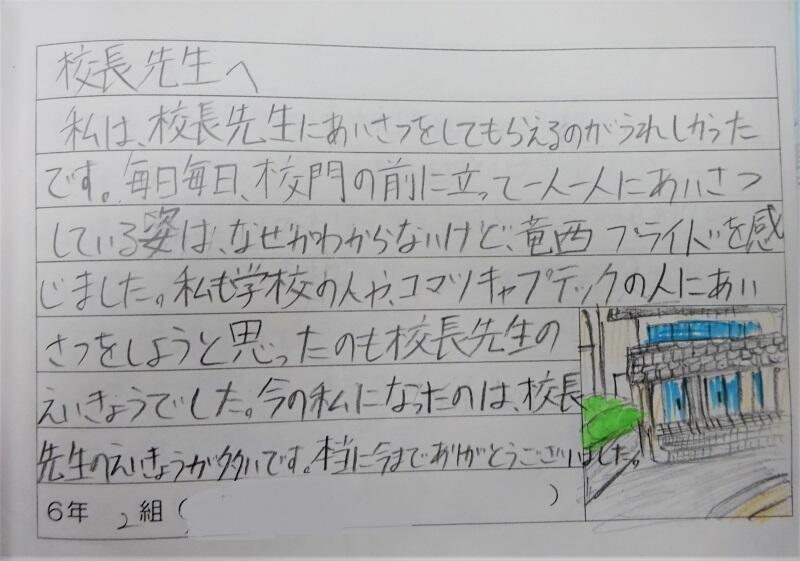 校長先生へ
私は、校長先生にあいさつをしてもらえるのがうれしかった
です。毎日毎日、校門の前に立って一人一人にあいさつ
している姿は、なぜかわからないけど、竜西プライドを感
じました。私も学校の人や、コマツキャプテックの人にあい
さつをしようと思ったのも校長先生の
えいきょうでした。今の私になったのは、校長
先生のえいきょうが多いです。本当に今までありがとうございました。
6年 2組( )